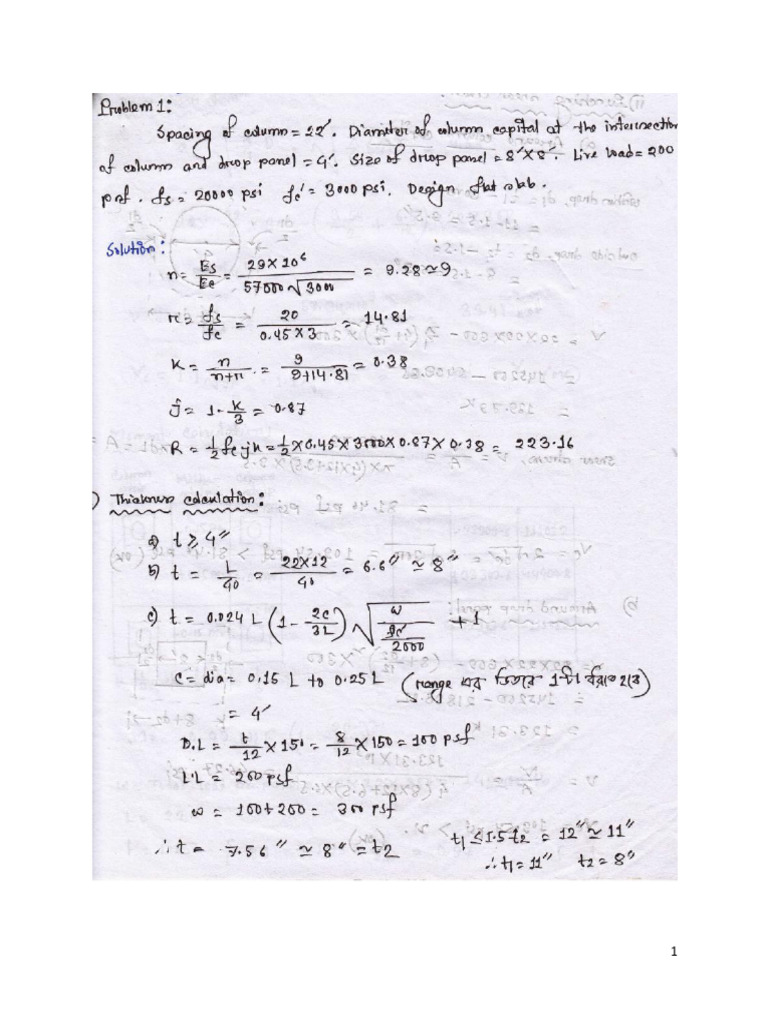 Problem 1:
Spacing of column = 22'. Diameter of column capital at the intersection
of column and drop panel = 4'. Size of drop panel = 8' X 8'. Live load = 200
psf. fs = 20000 psi fc' = 3000 psi. Design flat slab.
Solution:
n = Es/Ec = 29 X 10⁶ / 57000√3000 = 9.28 ≃ 9
r = fs/fc = 20 / 0.45 X 3 = 14.81
K = n/n+r = 9 / 9+14.81 = 0.38
j = 1 - K/3 = 0.87
R = 1/2 fc j k = 1/2 X 0.45 X 3000 X 0.87 X 0.38 = 223.16
) Thickness calculation:
a) t ≥ 4"
b) t = L/40 = 22X12/40 = 6.6" ≃ 8"
c) t = 0.024 L (1 - 2c/3L) √(w / (fc'/2000)) + 1
C = dia = 0.15 L to 0.25 L (range এর ভিতরে 1টা ধরতে হবে)
= 4'
D.L = t/12 X 150 = 8/12 X 150 = 100 psf
L.L = 200 psf
w = 100 + 200 = 300 psf
∴ t = 7.56" ≃ 8" = t2
t1 ≤ 1.5 t2 = 12" ≃ 11"
∴ t1 = 11" t2 = 8"
1